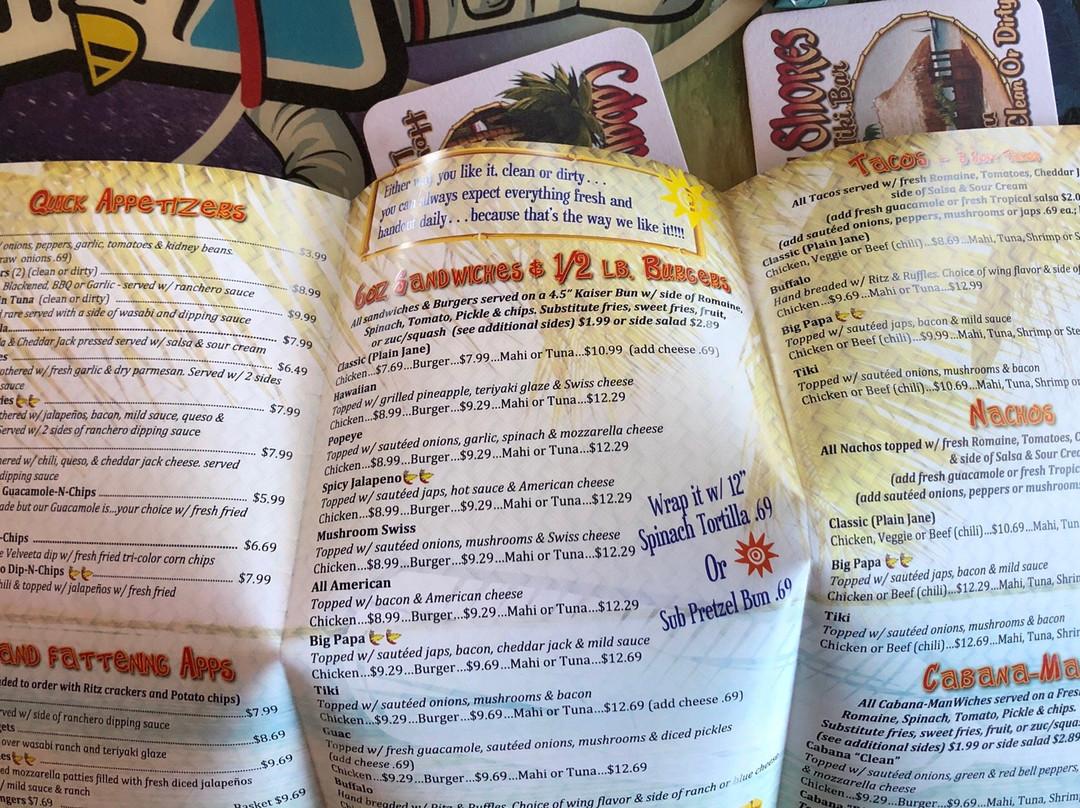 Shores
Tiki Bar
Clean Or Dirty
Quick Appetizers
onions, peppers, garlic, tomatoes & kidney beans.
raw onions .69)
$3.99
rs (2) (clean or dirty)
Blackened, BBQ or Garlic - served w/ ranchero sauce
$8.99
n Tuna (clean or dirty)
rare served with a side of wasabi and dipping sauce
$9.99
& Cheddar Jack pressed served w/ salsa & sour cream
$7.99
$6.49
othered w/ fresh garlic & dry parmesan. Served w/ 2 sides
sauce
$7.99
thered w/ jalapeños, bacon, mild sauce, queso &
Served w/ 2 sides of ranchero dipping sauce
$7.99
ered w/ chili, queso, & cheddar jack cheese. served
dipping sauce
Guacamole-N-Chips
$5.99
ade but our Guacamole is...your choice w/ fresh fried
-Chips
$6.69
e Velveeta dip w/ fresh fried tri-color corn chips
o Dip-N-Chips
$7.99
hili & topped w/ jalapeños w/ fresh fried
and Fattening Apps
ded to order with Ritz crackers and Potato chips)
$7.99
ved w/ side of ranchero dipping sauce
gets
$8.69
over wasabi ranch and teriyaki glaze
$9.69
ed mozzarella patties filled with fresh diced jalapeños
/ mild sauce & ranch
ngers $7.69
Basket $9.69
Either way you like it, clean or dirty...
you can always expect everything fresh and
handcut daily...because that's the way we like it!!!!
6oz Sandwiches & 1/2 lb. Burgers
All sandwiches & Burgers served on a 4.5" Kaiser Bun w/ side of Romaine,
Spinach, Tomato, Pickle & chips. Substitute fries, sweet fries, fruit,
or zuc/squash (see additional sides) $1.99 or side salad $2.89
Classic (Plain Jane)
Chicken...$7.69...Burger...$7.99...Mahi or Tuna...$10.99 (add cheese .69)
Hawaiian
Topped w/ grilled pineapple, teriyaki glaze & Swiss cheese
Chicken...$8.99...Burger...$9.29...Mahi or Tuna...$12.29
Popeye
Topped w/ sautéed onions, garlic, spinach & mozzarella cheese
Chicken...$8.99...Burger...$9.29...Mahi or Tuna...$12.29
Spicy Jalapeno
Topped w/ sautéed japs, hot sauce & American cheese
Chicken...$8.99...Burger...$9.29...Mahi or Tuna...$12.29
Mushroom Swiss
Topped w/ sautéed onions, mushrooms & Swiss cheese
Chicken...$8.99...Burger...$9.29...Mahi or Tuna...$12.29
All American
Topped w/ bacon & American cheese
Chicken...$8.99...Burger...$9.29...Mahi or Tuna...$12.29
Big Papa
Topped w/ sautéed japs, bacon, cheddar jack & mild sauce
Chicken...$9.29...Burger...$9.69...Mahi or Tuna...$12.69
Tiki
Topped w/ sautéed onions, mushrooms & bacon
Chicken...$9.29...Burger...$9.69...Mahi or Tuna...$12.69 (add cheese .69)
Guac
Topped w/ fresh guacamole, sautéed onions, mushrooms & diced pickles
(add cheese .69)
Chicken...$9.29...Burger...$9.69...Mahi or Tuna...$12.69
Buffalo
Hand breaded w/ Ritz & Ruffles. Choice of wing flavor & side of ranch or blue cheese.
Wrap it w/ 12"
Spinach Tortilla .69
Or
Sub Pretzel Bun .69
Tacos -
All Tacos served w/ fresh Romaine, Tomatoes, Cheddar J
side of Salsa & Sour Cream
(add fresh guacamole or fresh Tropical salsa $2.0
(add sautéed onions, peppers, mushrooms or japs .69 ea.;
Classic (Plain Jane)
Chicken, Veggie or Beef (chili)...$8.69...Mahi, Tuna, Shrimp or S
Buffalo
Hand breaded w/ Ritz & Ruffles. Choice of wing flavor & side of
Chicken...$9.69...Mahi or Tuna...$12.99
Big Papa
Topped w/ sautéed japs, bacon & mild sauce
Chicken or Beef (chili)...$9.99...Mahi, Tuna, Shrimp or Ste
Tiki
Topped w/ sautéed onions, mushrooms & bacon
Chicken or Beef (chili)...$10.69...Mahi, Tuna, Shrimp or
Nachos
All Nachos topped w/ fresh Romaine, Tomatoes, C
& side of Salsa & Sour Crea
(add fresh guacamole or fresh Tropic
(add sautéed onions, peppers or mushrooms
Classic (Plain Jane)
Chicken, Veggie or Beef (chili)...$10.69...Mahi, Tun
Big Papa
Topped w/ sautéed japs, bacon & mild sauce
Chicken or Beef (chili)...$12.29...Mahi, Tuna, Shrim
Tiki
Topped w/ sautéed onions, mushrooms & bacon
Chicken or Beef (chili)...$12.69...Mahi, Tuna, Shrim
Cabana-Ma
All Cabana-ManWiches served on a Fres
Romaine, Spinach, Tomato, Pickle & chips.
Substitute fries, sweet fries, fruit, or zuc/squa
(see additional sides) $1.99 or side salad $2.89
Cabana "Clean"
Topped w/ sautéed onions, green & red bell peppers,
& mozzarella cheese
Chicken...$9.29...Burger...$9.69...Mahi, Tuna, Shrimp
Cabana